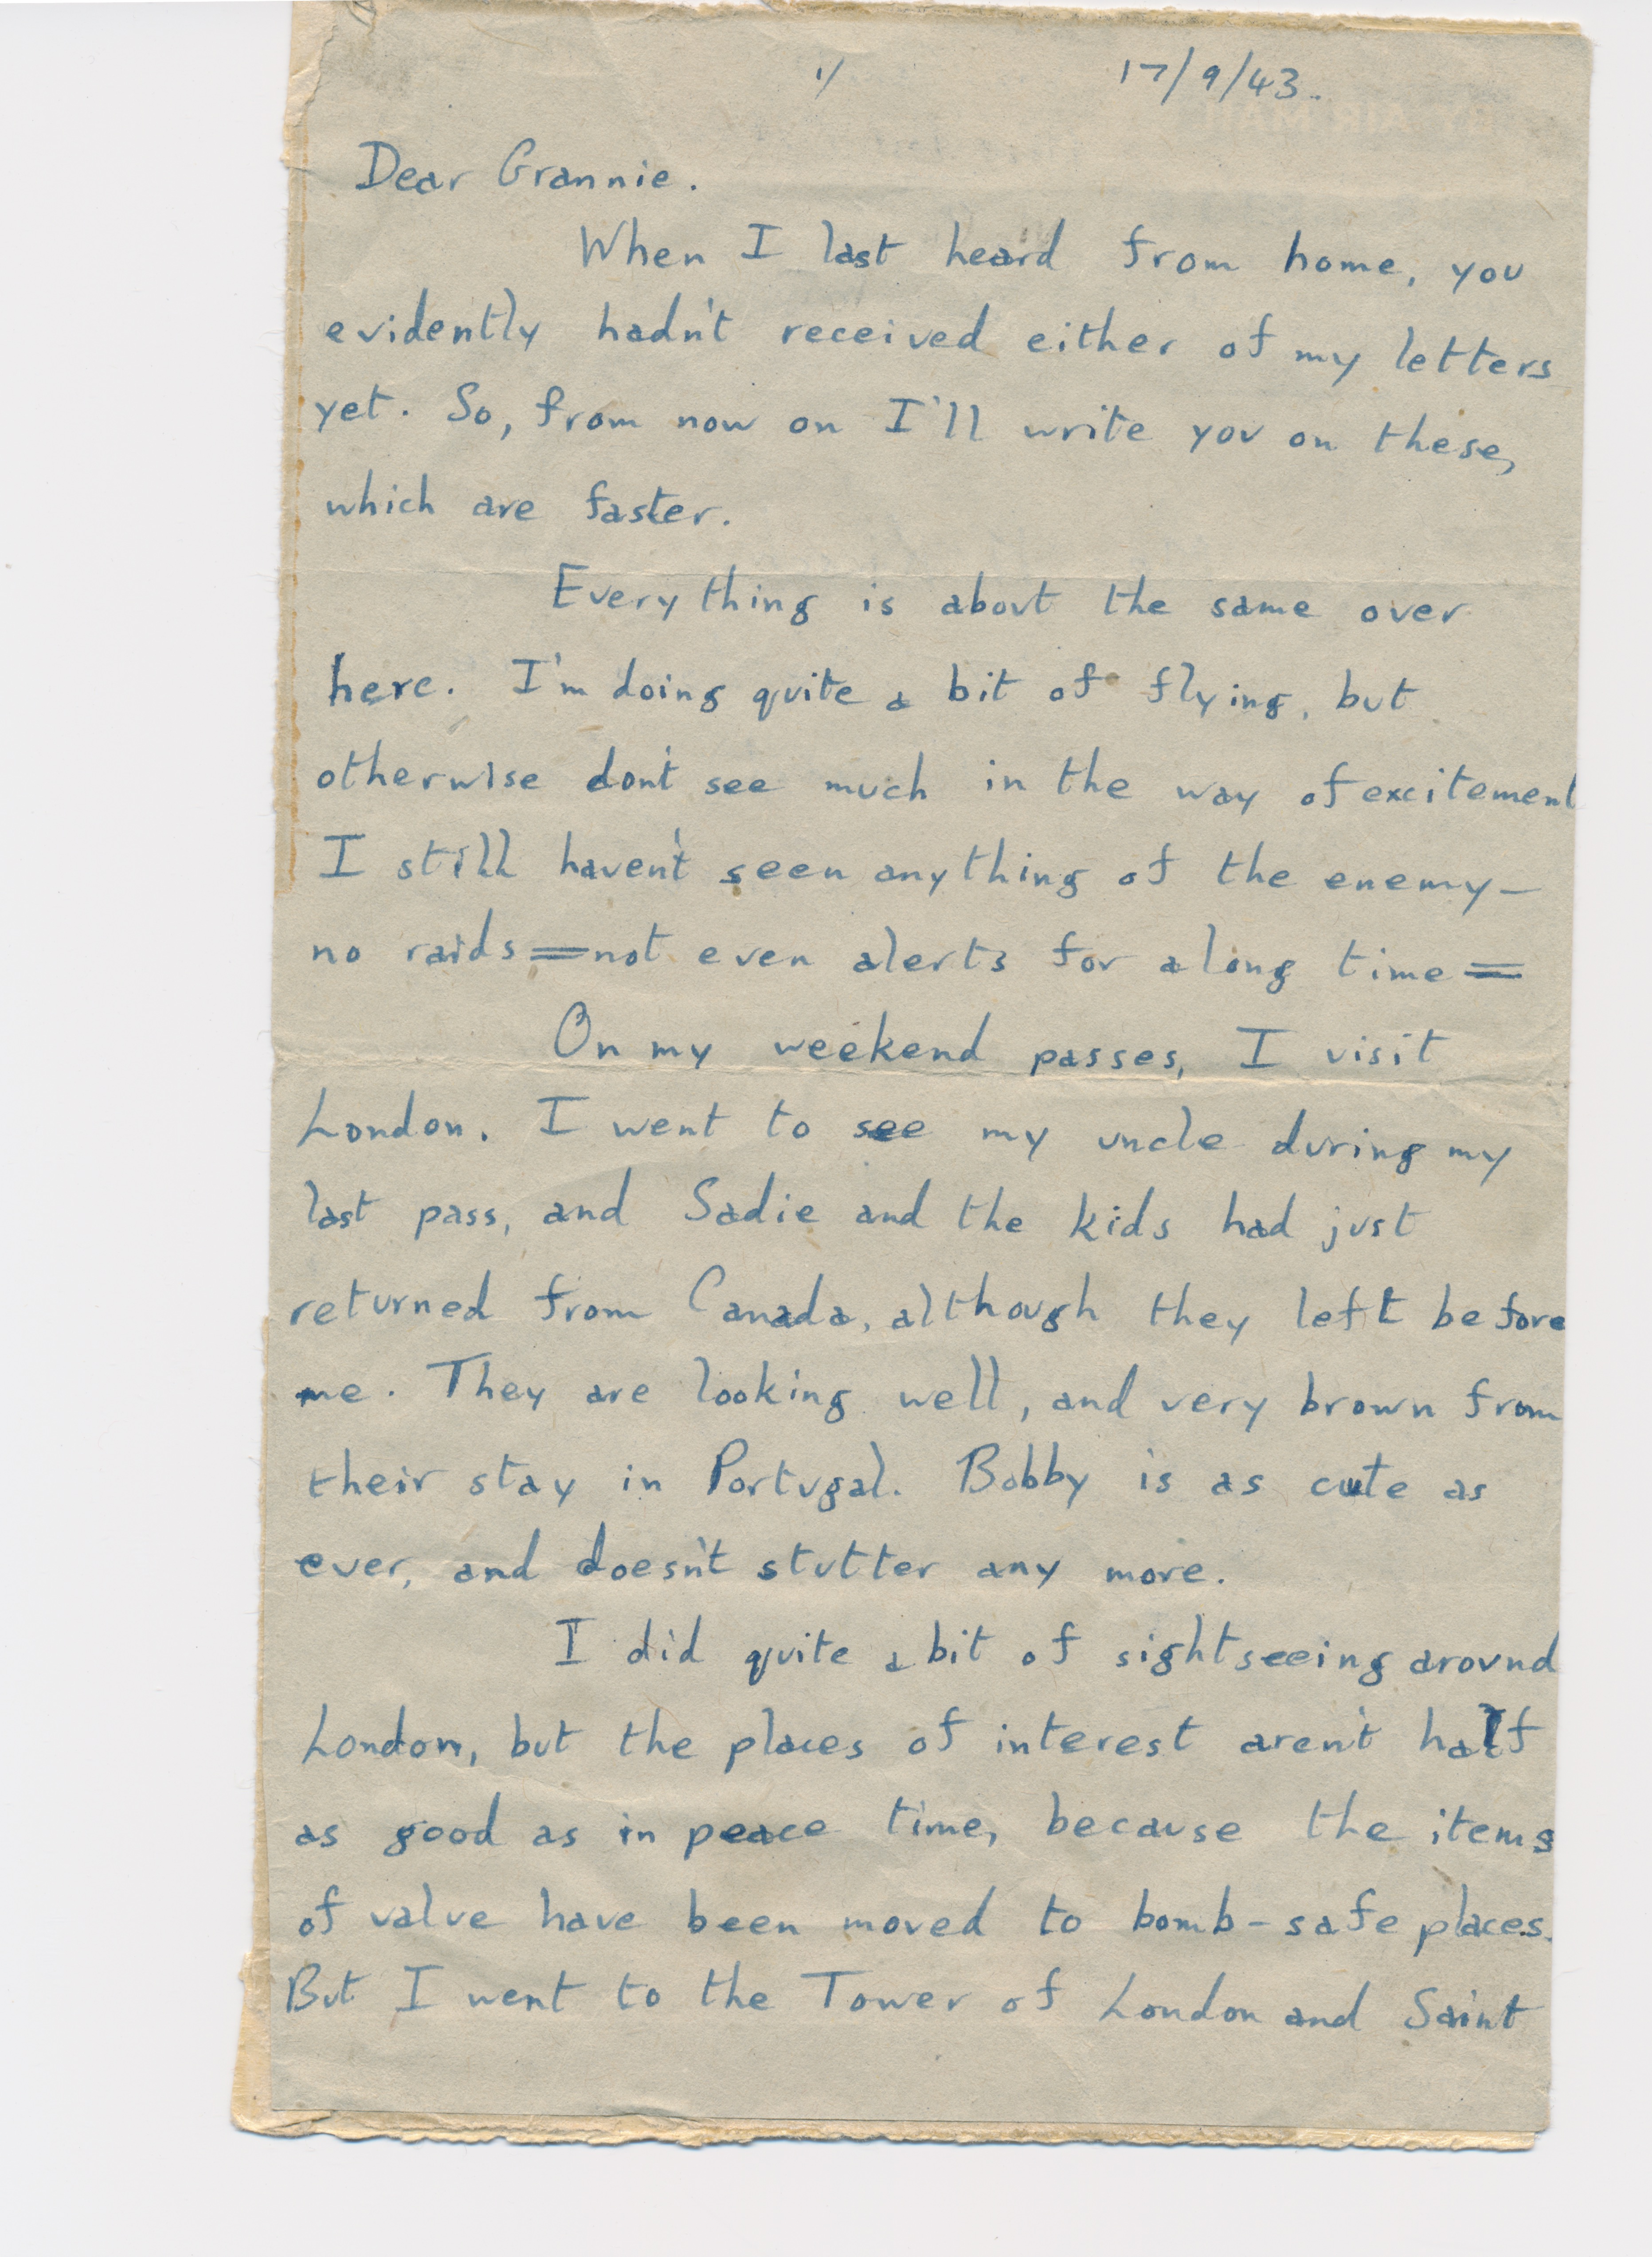 1/ 17/9/43.
BY AIR MAIL
Dear Grannie.
When I last heard from home, you
evidently hadn't received either of my letters
yet. So, from now on I'll write you on these,
which are faster.
Everything is about the same over
here. I'm doing quite a bit of flying, but
otherwise don't see much in the way of excitement
I still haven't seen anything of the enemy—
no raids=not even alerts for a long time=
On my weekend passes, I visit
London. I went to see my uncle during my
last pass, and Sadie and the kids had just
returned from Canada, although they left before
me. They are looking well, and very brown from
their stay in Portugal. Bobby is as cute as
ever, and doesn't stutter any more.
I did quite a bit of sightseeing around
London, but the places of interest aren't half
as good as in peace time, because the items
of value have been moved to bomb-safe places.
But I went to the Tower of London and Saint